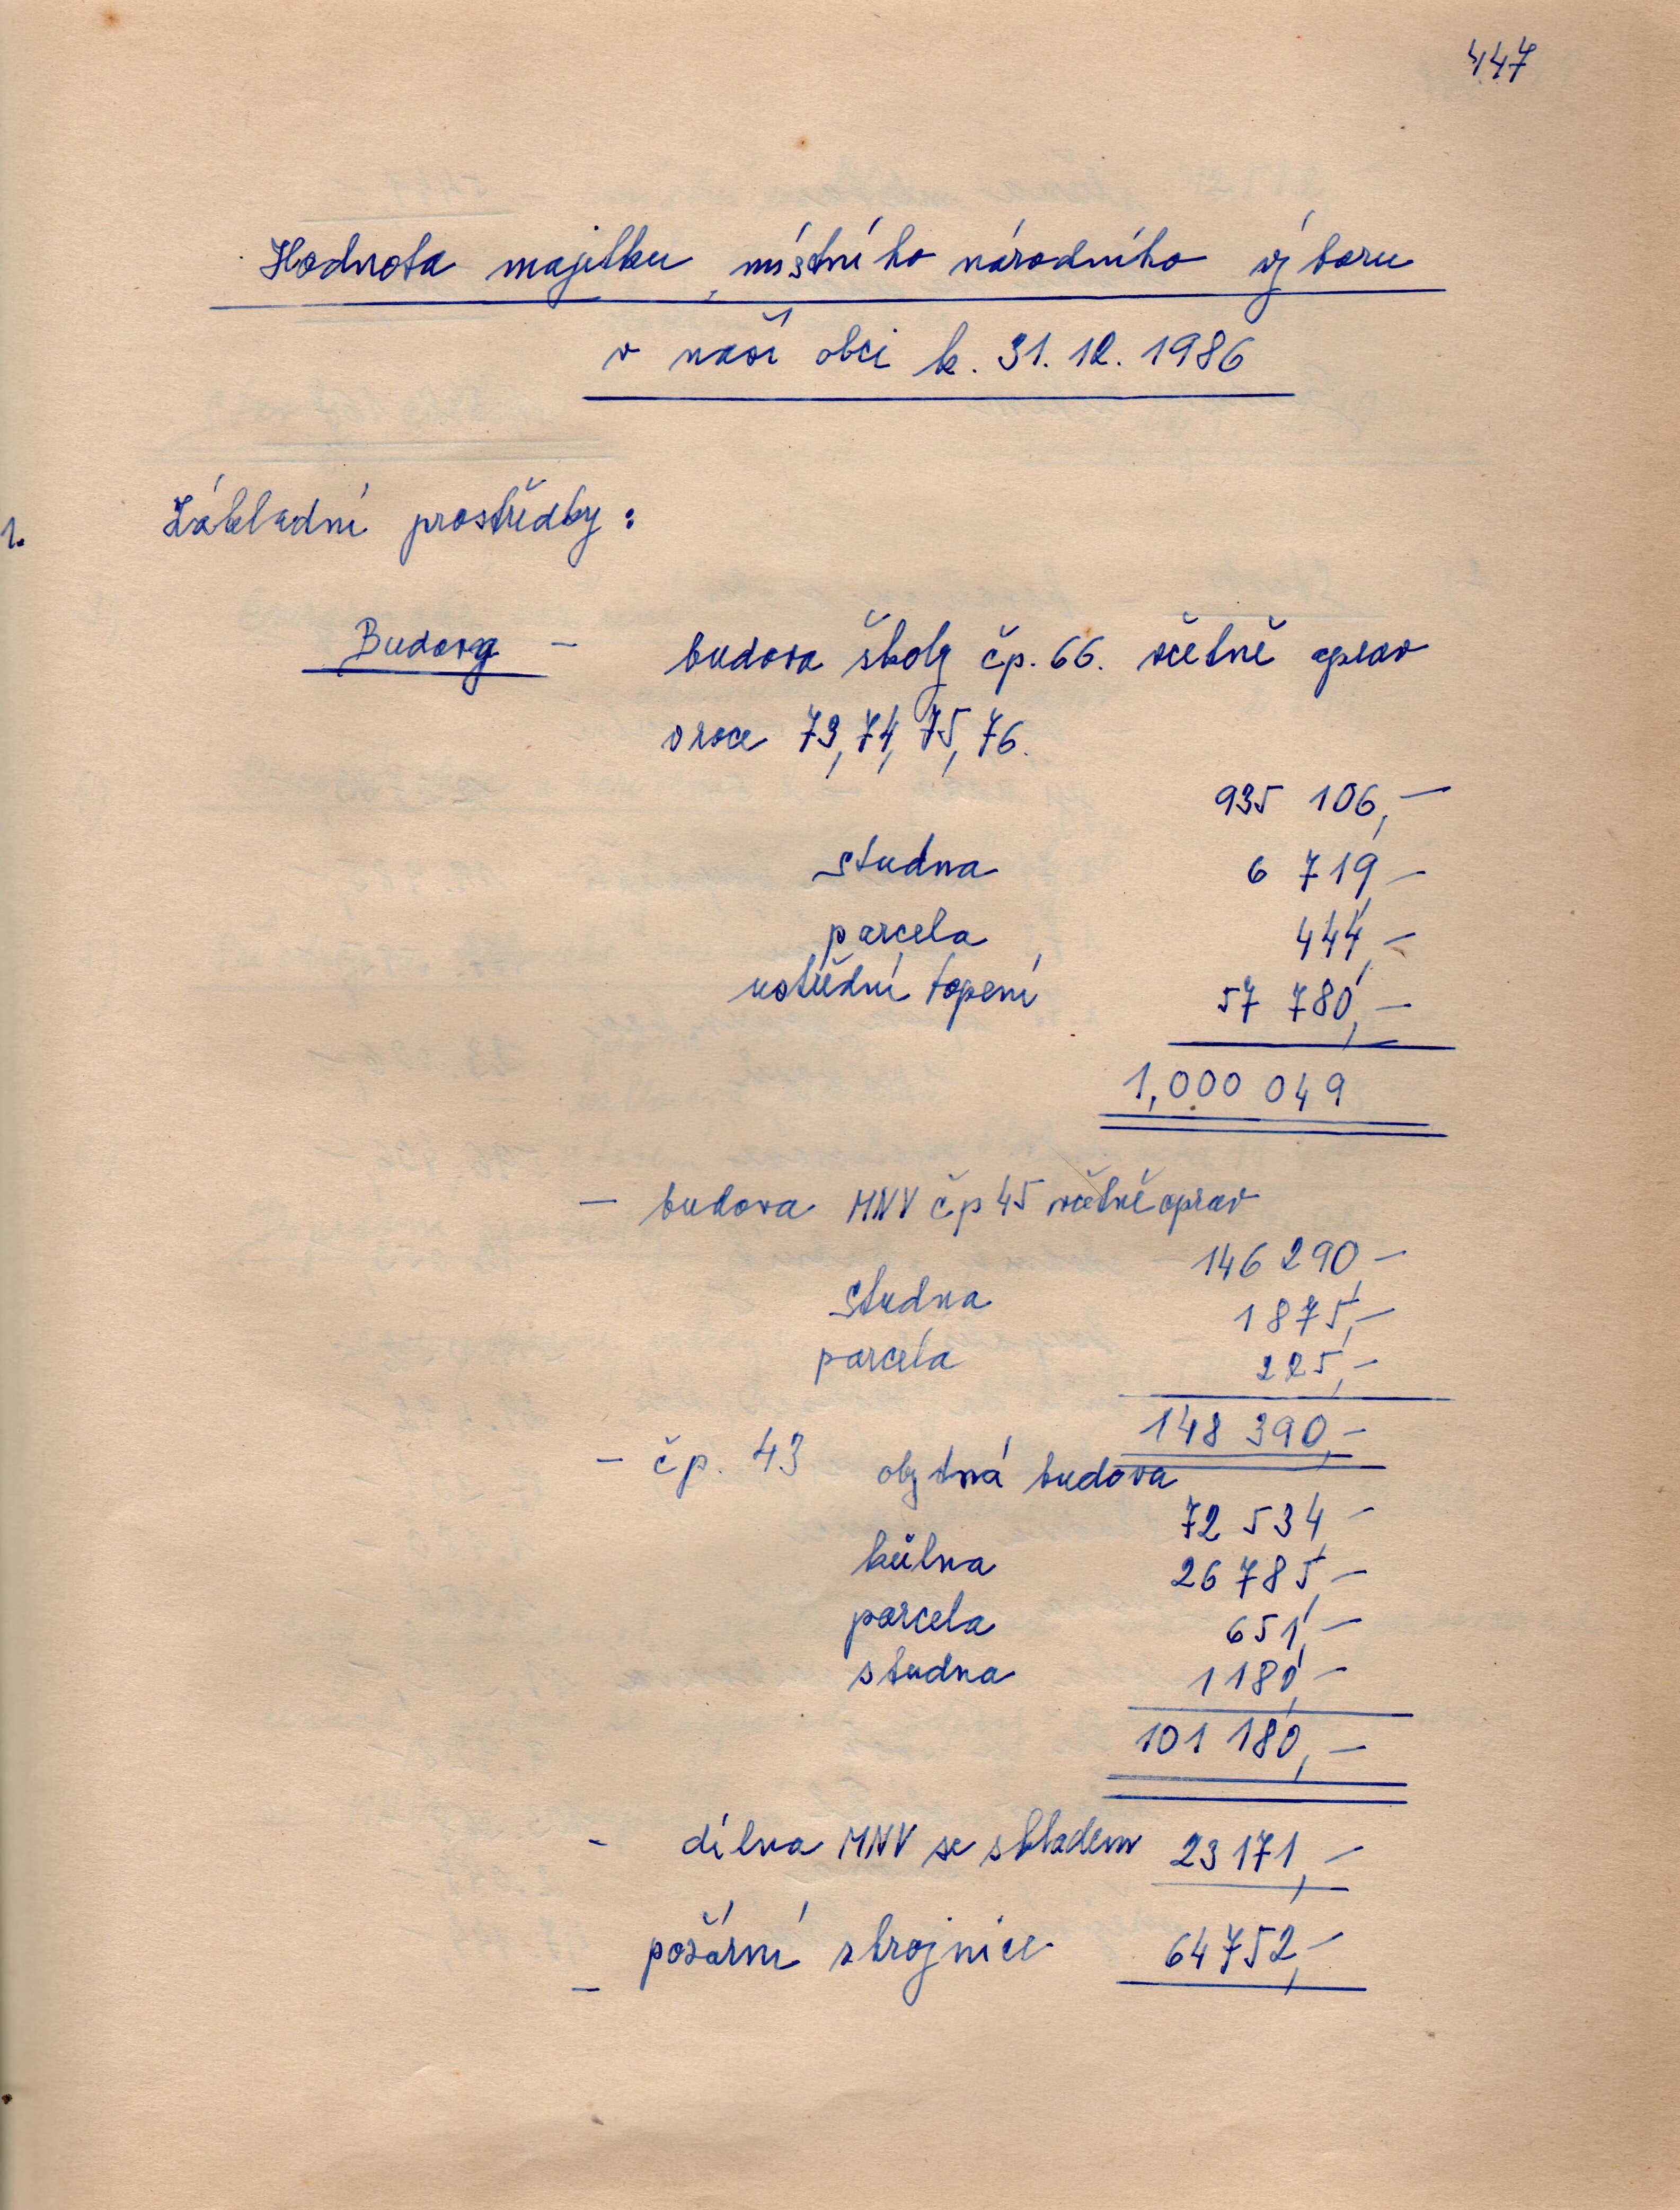 447
Hodnota majetku místního národního výboru
v naší obci k. 31. 12. 1986
1. Základní prostředky:
Budovy - budova školy čp. 66. včetně oprav
v roce 73, 74, 75, 76.
935 106,-
studna 6 719,-
parcela 444,-
ústřední topení 57 780,-
1,000 049
- budova MNV čp 45 včetně oprav
146 290,-
studna 1 875,-
parcela 225,-
148 390,-
- čp. 43 obytná budova
72 534,-
kůlna 26 785,-
parcela 651,-
studna 1 180,-
101 180,-
- dílna MNV se skladem 23 171,-
- požární zbrojnice 64 752,-